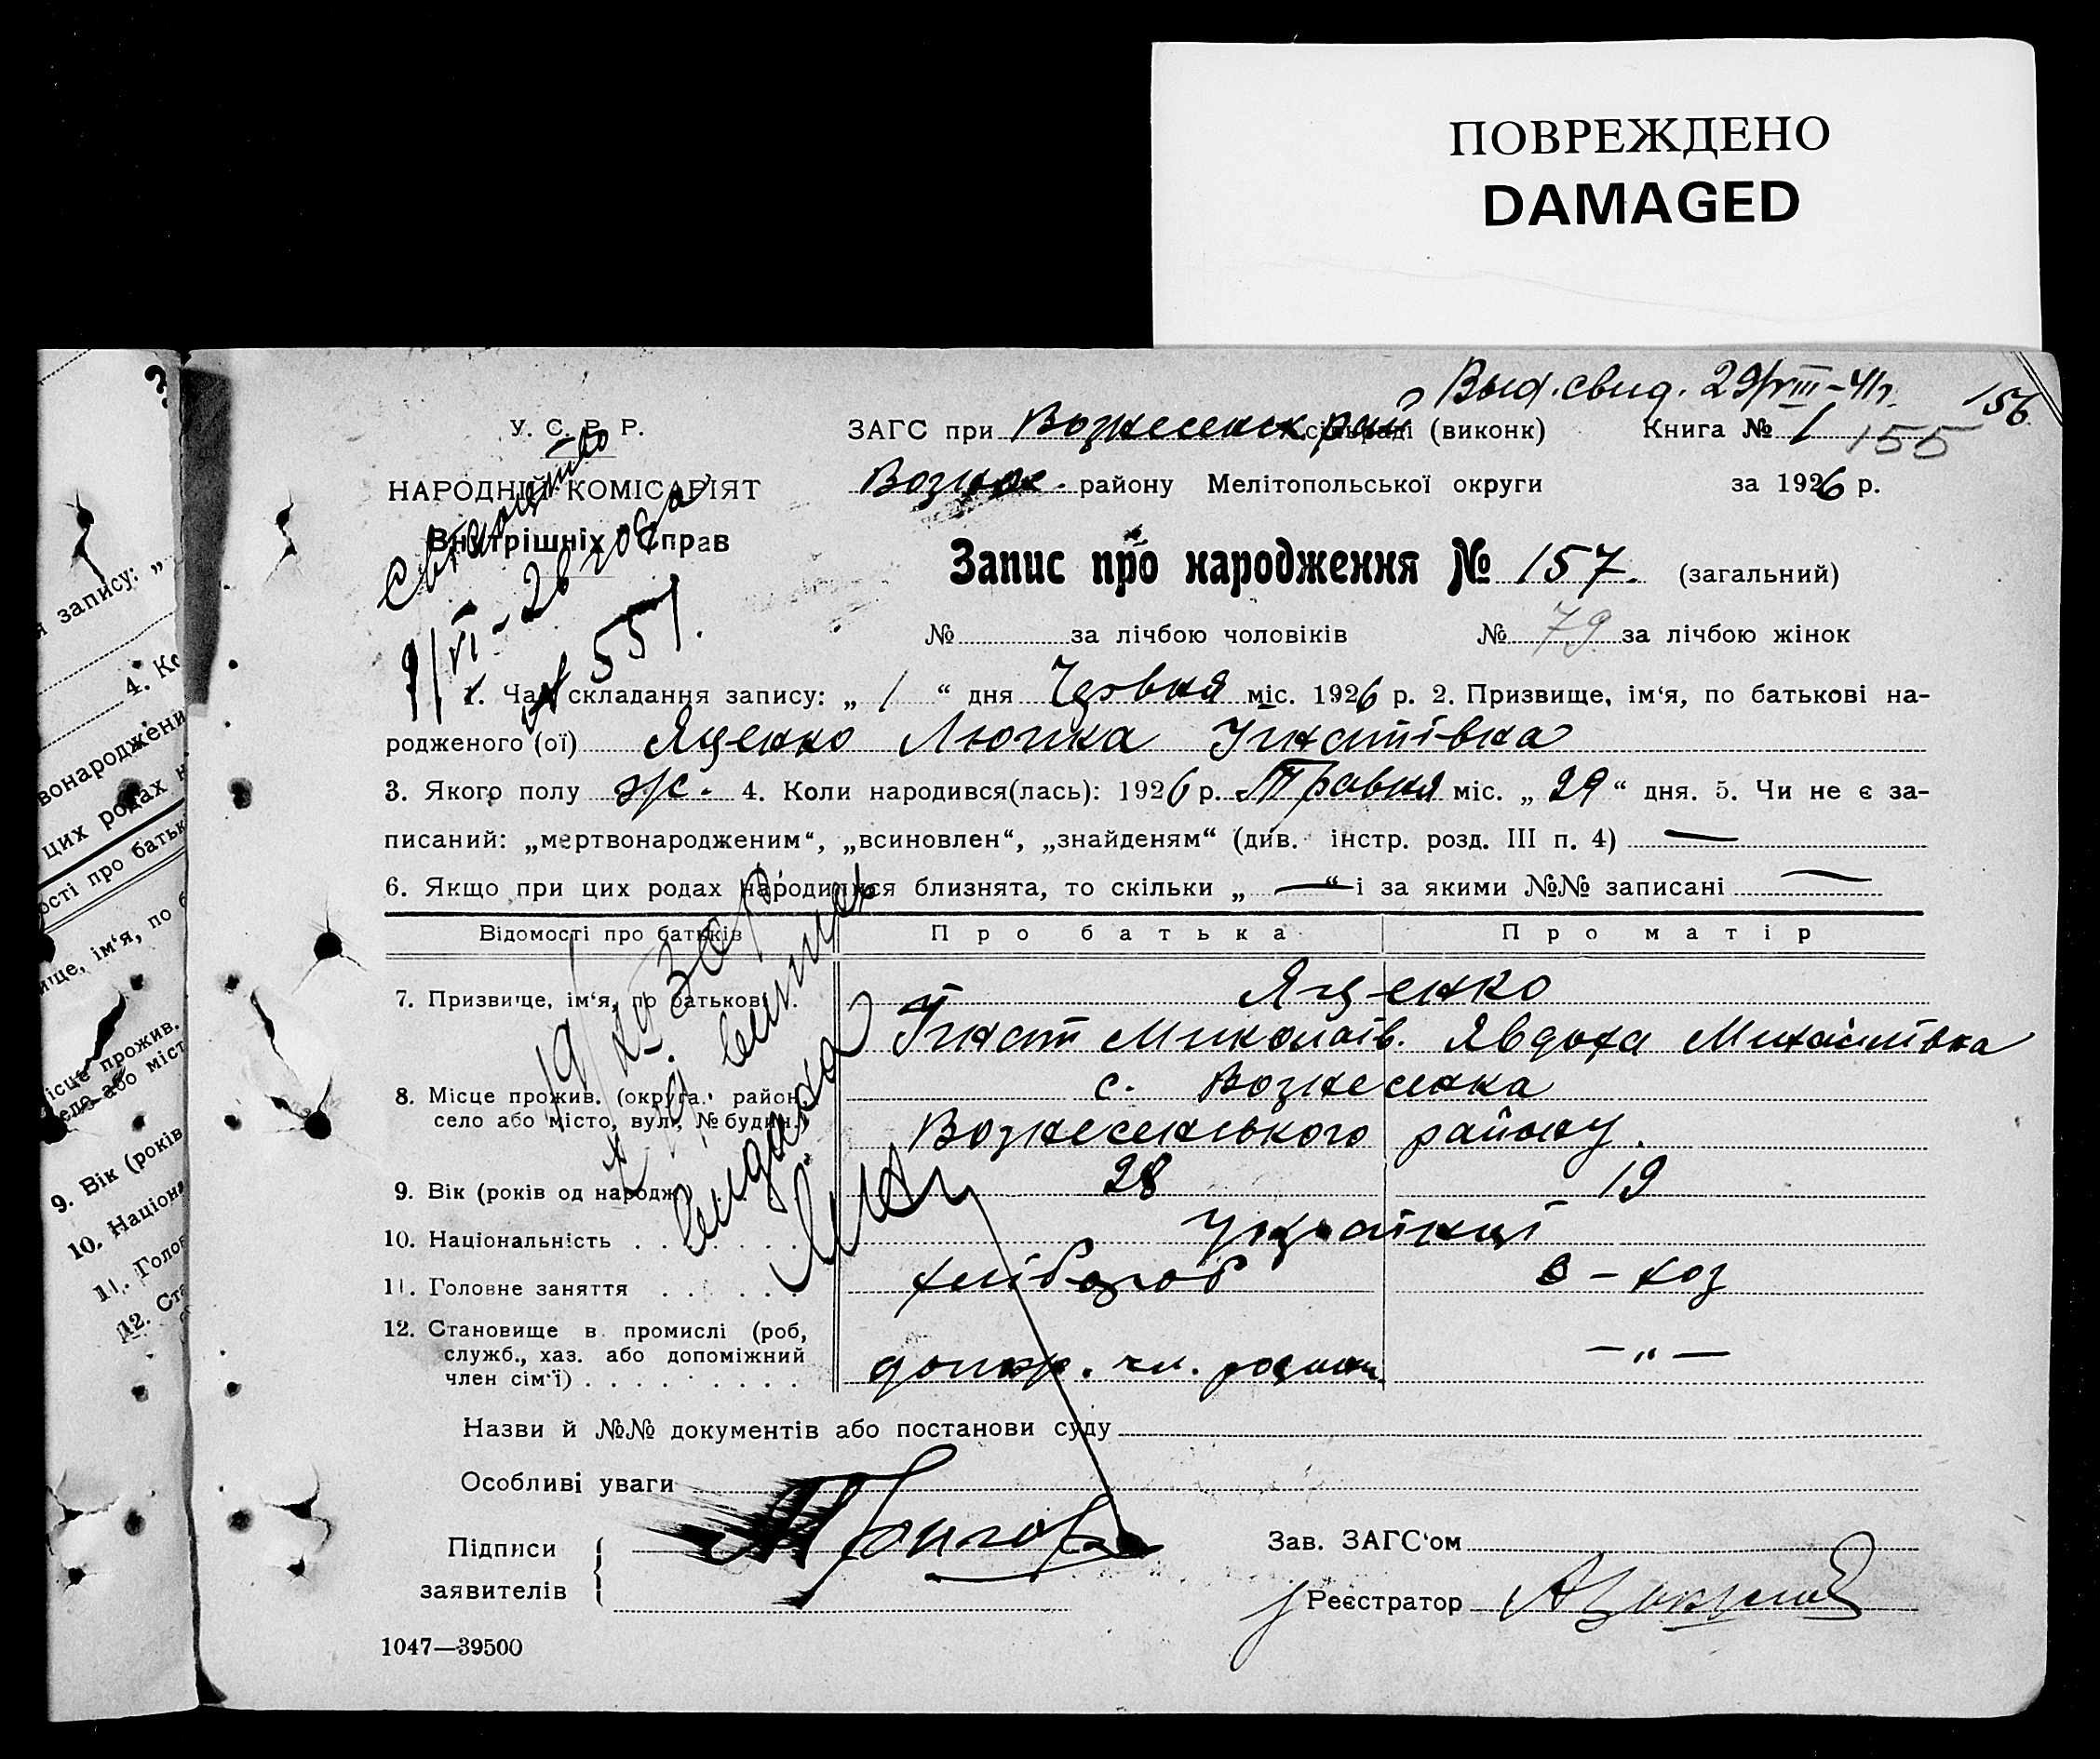 ПОВРЕЖДЕНО
DAMAGED
Выд. свид. 29/VIII-41г.
156
155
У. С. Р. Р.
НАРОДНІЙ КОМІСАРІЯТ
Внутрішніх Справ
ЗАГС при Вознесенск. рай сільраді (виконк) Книга № 1
Вознес. району Мелітопольської округи за 1926 р.
Запис про народження № 157. (загальний)
№ за лічбою чоловіків № 79 за лічбою жінок
Свидоцтво
9/VI-26 года
№ 551.
1. Час складання запису: „ 1 “ дня Червня міс. 1926 р. 2. Призвище, ім‘я, по батькові на-
родженого (ої) Яценко Гнатівна
3. Якого полу ж. 4. Коли народився(лась): 1926 р. Травня міс. „ 29 “ дня. 5. Чи не є за-
писаний: „мертвонародженим“, „всиновлен“, „знайденям“ (див. інстр. розд. III п. 4) —
6. Якщо при цих родах народилися близнята, то скільки „ — “ і за якими №№ записані —
Відомості про батьків Про батька Про матір
7. Призвище, ім‘я, по батькові . Яценко
Гнат Миколаїв. Явдоха Михайлівна
8. Місце прожив. (округа, район, село або місто, вул., № будин.) с. Вознесенка
Вознесенського району.
9. Вік (років од народж.) 28 19
10. Національність . . . . . . Українці
11. Головне заняття . . . . . . хлібороб в-хоз
12. Становище в промислі (роб,
служб., хаз. або допоміжний
член сім‘ї) . . . . . . . . . допом. чл. родини —„—
Назви й №№ документів або постанови суду
Особливі уваги
Підписи
заявителів
Зав. ЗАГС‘ом
Реєстратор
1047—39500
запису: „
4. Ко
вонароджени
цих родах н
ості про батьк
ище, ім‘я, по б
ісце прожив.
село або міст
9. Вік (років
10. Націона
11. Голов
12. Ста